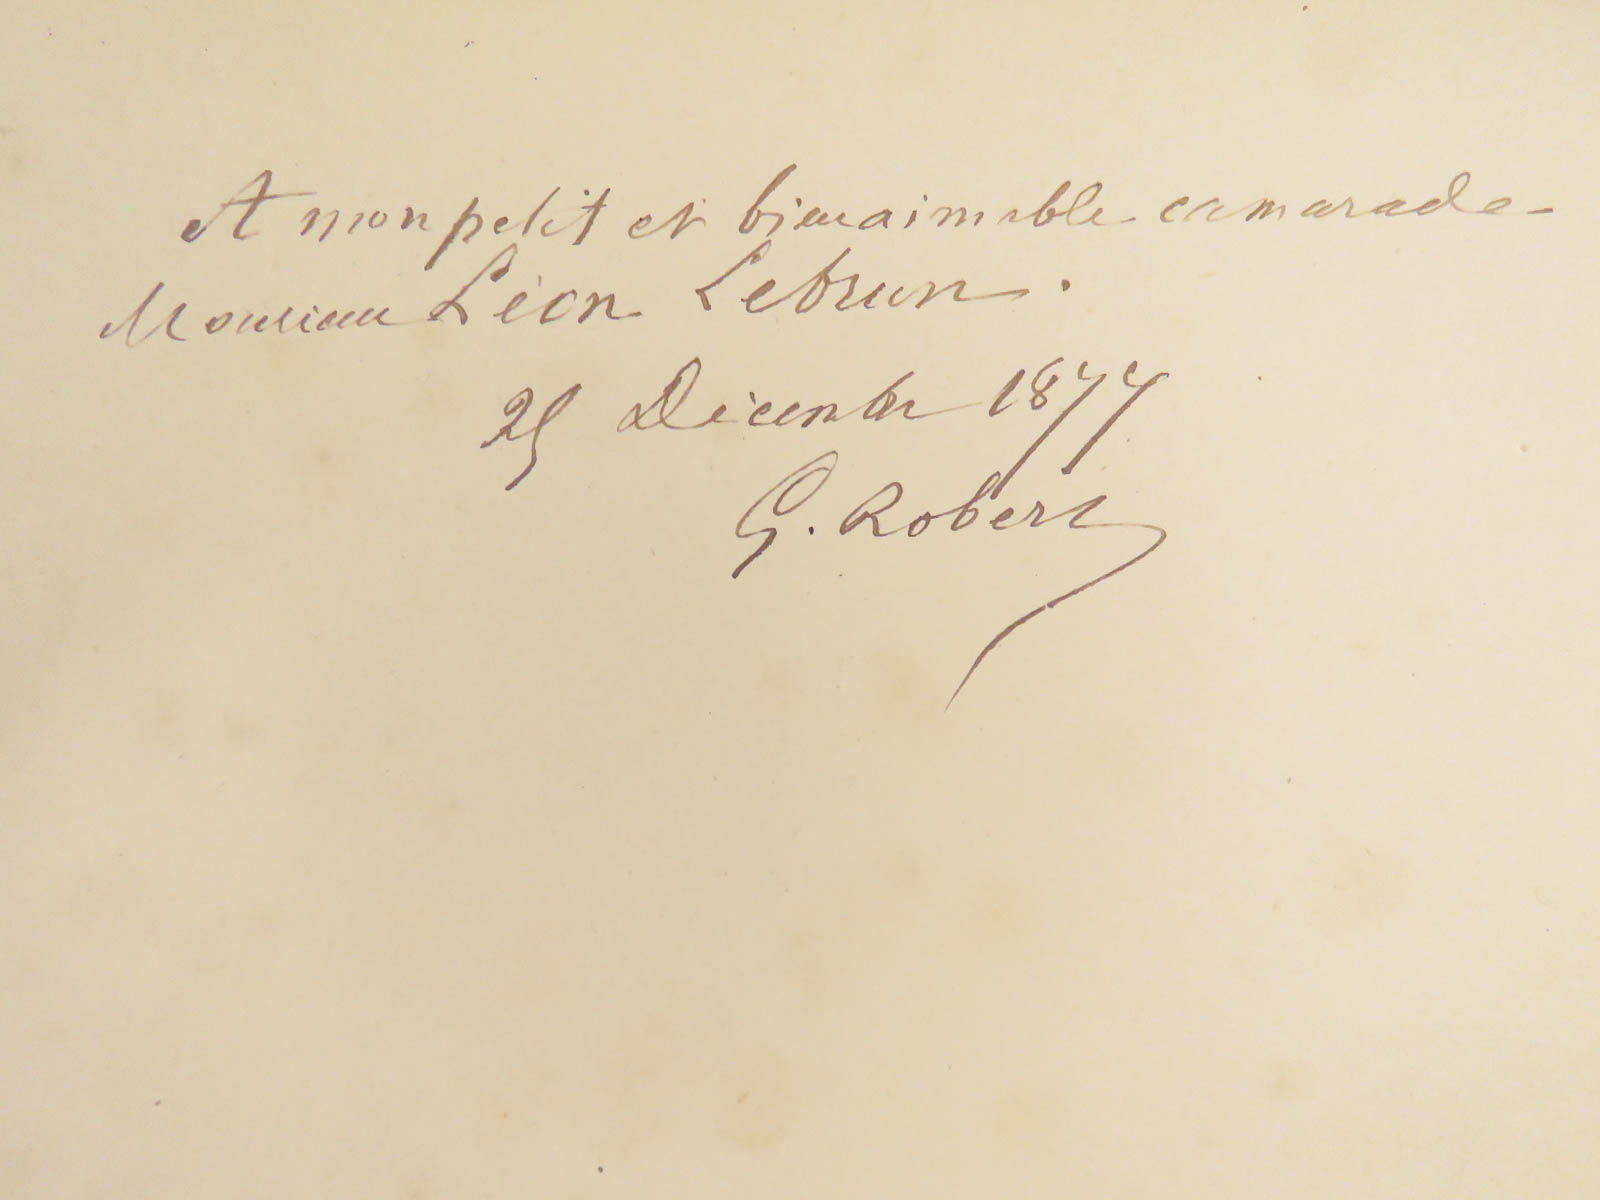 A mon petit et bien aimable camarade
Monsieur Léon Lebrun.
25 Décembre 1877
G. Robert